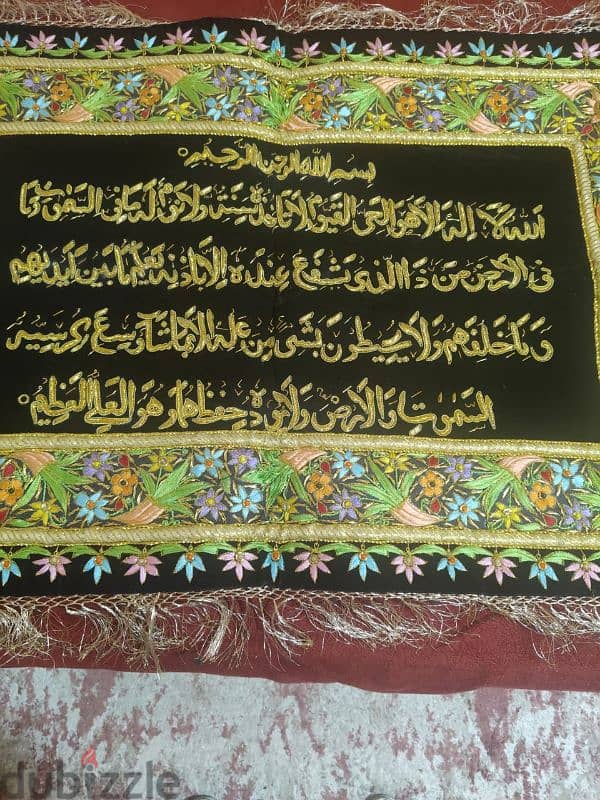 بسم الله الرحمن الرحيم
الله لا إله إلا هو الحي القيوم لا تأخذه سنة ولا نوم له ما في السموات وما
في الارض من ذا الذي يشفع عنده الا باذنه يعلم ما بين ايديهم
وما خلفهم ولا يحيطون بشئ من علمه الا بما شآء وسع كرسيه
السموات والارض ولا يؤده حفظهما وهو العلي العظيم
dubizzle